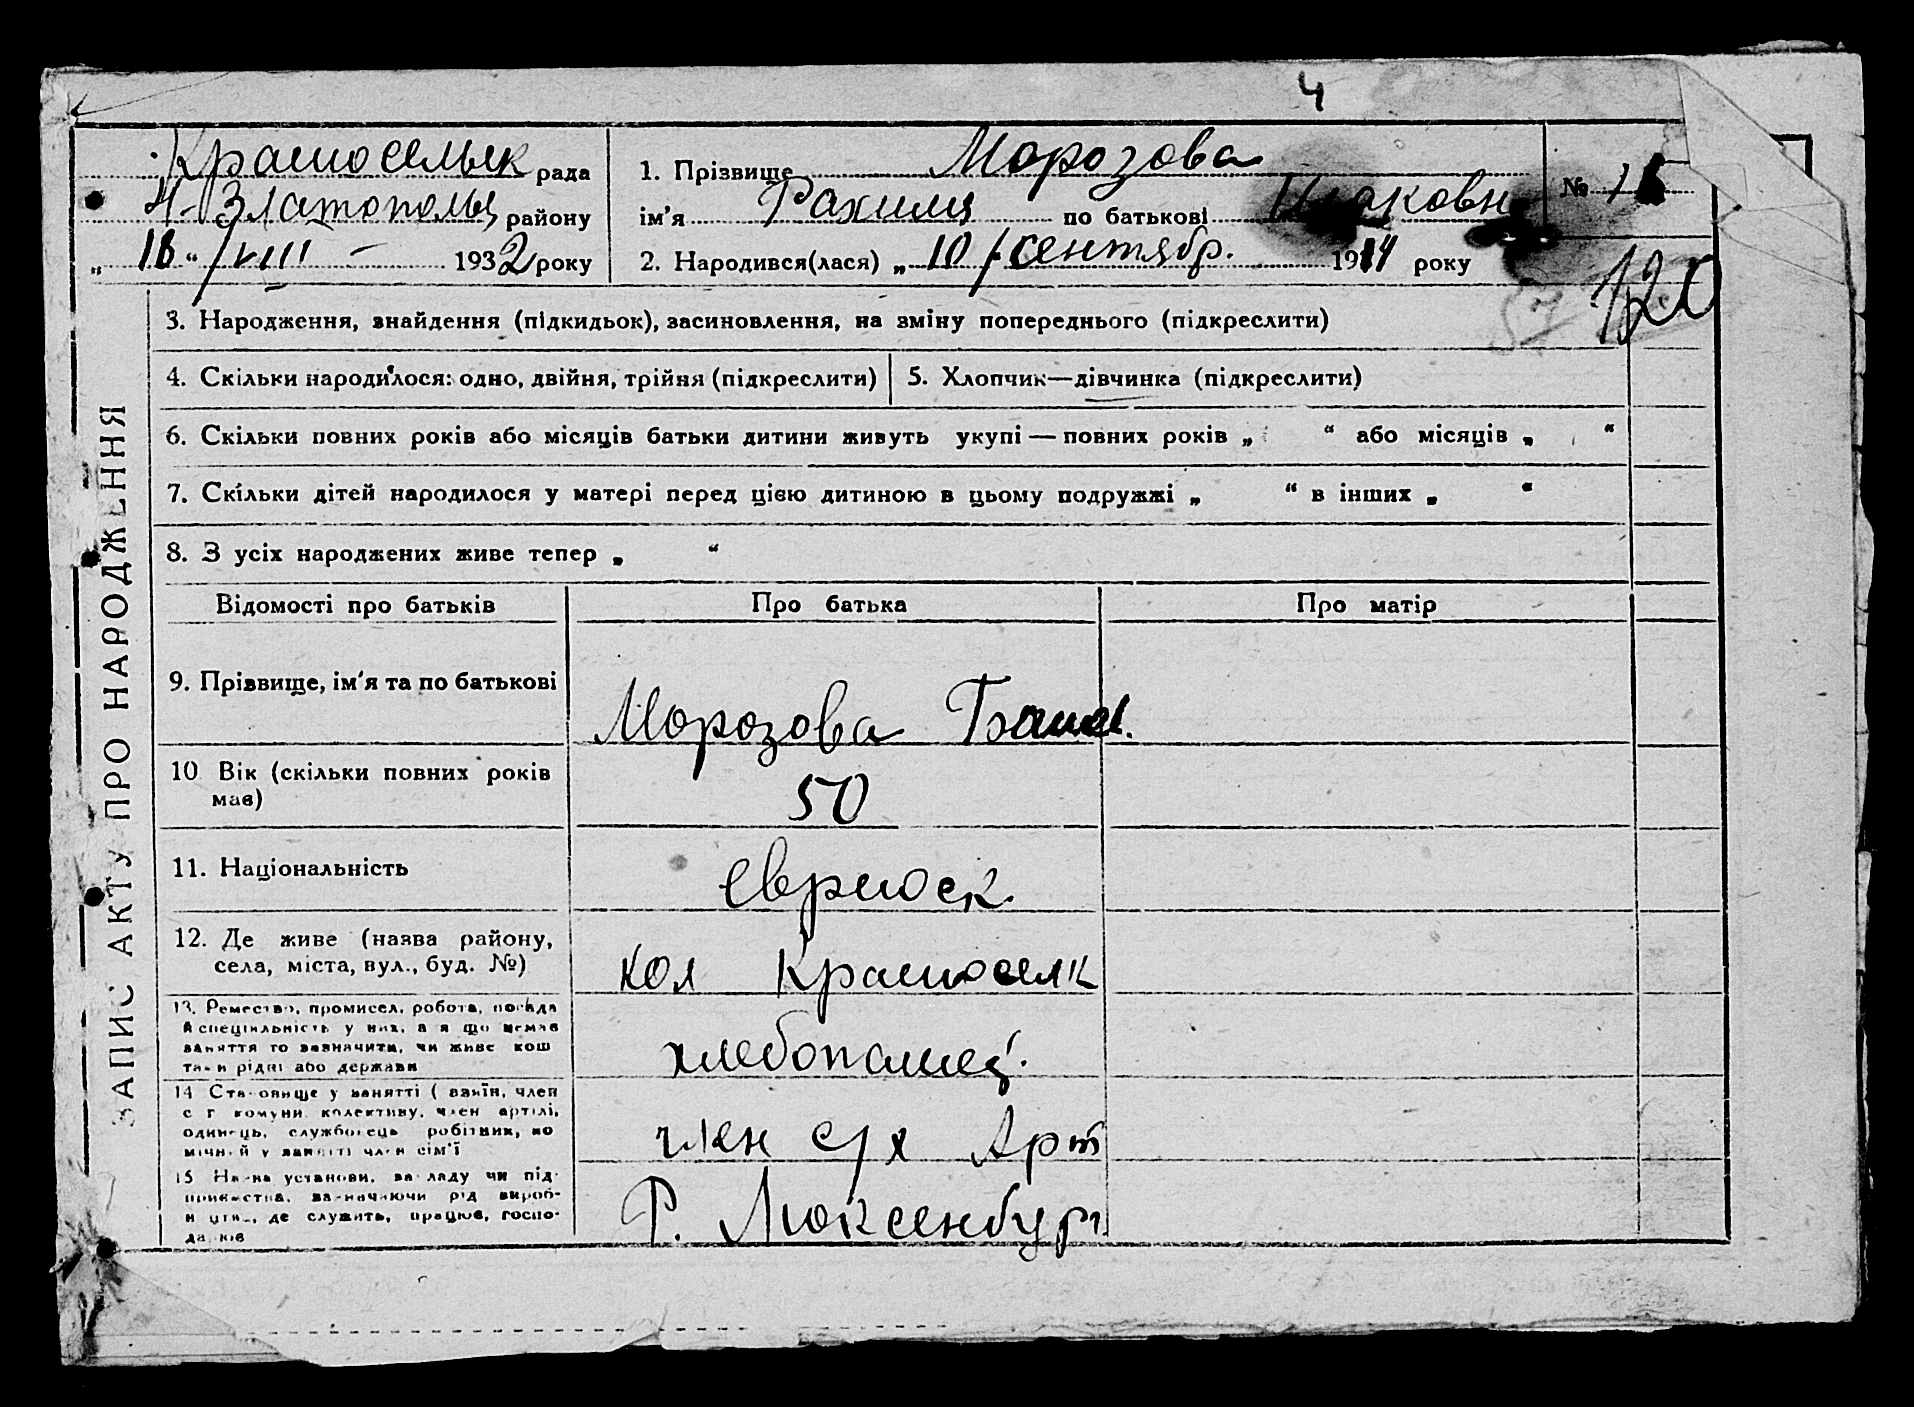 4
Красносельск рада
Н-Златополь району
„ 18 “ /VIII – 1932 року
1. Прізвище Морозова
ім'я Рахиля по батькові
№
2. Народився(лася) „ 10 / сентябр. 1914 року
120
3. Народження, знайдення (підкидьок), засиновлення, на зміну попереднього (підкреслити)
4. Скільки народилося: одно, двійня, трійня (підкреслити)
5. Хлопчик—дівчинка (підкреслити)
6. Скільки повних років або місяців батьки дитини живуть укупі — повних років „ “ або місяців „ “
7. Скільки дітей народилося у матері перед цією дитиною в цьому подружжі „ “ в інших „ “
8. З усіх народжених живе тепер „ “
ЗАПИС АКТУ ПРО НАРОДЖЕННЯ
Відомості про батьків
Про батька
Про матір
9. Прізвище, ім'я та по батькові
Морозова
10 Вік (скільки повних років
має)
50
11. Національність
12. Де живе (назва району,
села, міста, вул., буд. №)
кол Красноселк
13. Ремество, промисел, робота, посада
й спеціяльність у них, а я що немає
заняття то зазначити, чи живе кош
та и рідні або держави
хлебопашец.
14 Становище у занятті ( ваяїн, член
с г комуни, колективу, член артілі,
одинець, службовець робітник, по
мічний у занятті член сім'ї
член с/х Арт
15 Назва установи, закладу чи під-
приємства, зазначаючи рід вироб-
ництв, де служить, працює, госпо-
дарює
Р. Люксенбург